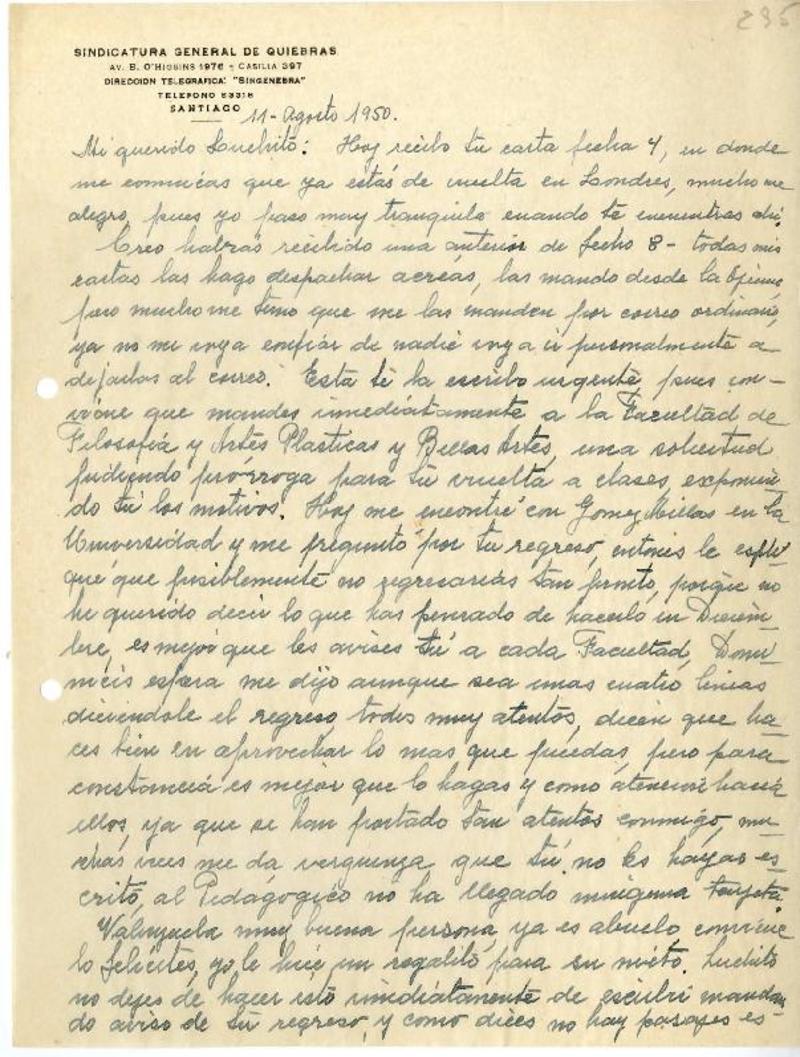 235
SINDICATURA GENERAL DE QUIEBRAS
AV. B. O'HIGGINS 1976 - CASILLA 397
DIRECCION TELEGRAFICA: "SINGENEBRA"
TELEFONO 83318
SANTIAGO 11 - Agosto 1950.
Mi querido Luchito: Hoy recibo tu carta fecha 4, en donde
me comunicas que ya estás de vuelta en Londres, mucho me
alegro, pues yo paso muy tranquila cuando te encuentras ahí.
Creo habrás recibido una anterior de fecha 8 - todas mis
cartas las hago despachar aereas, las mando desde la
pero mucho me temo que me las manden por correo ordinario,
ya no me voy a confiar de nadie voy a ir personalmente a
dejarlas al correo. Esta te la escribo urgente, pues con-
viene que mandes inmediatamente a la Facultad de
Filosofía y Artes Plasticas y Bellas Artes, una solicitud
pidiendo prórroga para tu vuelta a clases, exponien-
do tú los motivos. Hoy me encontré con Gomez Millas en la
Universidad y me preguntó por tu regreso, entonces le espli-
qué que posiblemente no regresarias tan pronto, porque no
he querido decir lo que has pensado de hacerlo en Diciem-
bre, es mejor que les avises tú a cada Facultad, Domi-
nicis espera me dijo aunque sea unas cuatro lineas
diciendole el regreso, todos muy atentos, dicen que ha-
ces bien en aprovechar lo mas que puedas, pero para
constancia es mejor que lo hagas y como atención hacia
ellos, ya que se han portado tan atentos conmigo, mu-
chas veces me da verguenza que tú no les hayas es-
crito, al Pedagógico no ha llegado ninguna tarjeta.
Valenzuela muy buena persona, ya es abuelo conviene
lo felicites, yo le hice un regalito para su nieto. Luchito
no dejes de hacer esto inmediatamente de escribir mandan-
do aviso de tu regreso, y como dices no hay pasajes es-